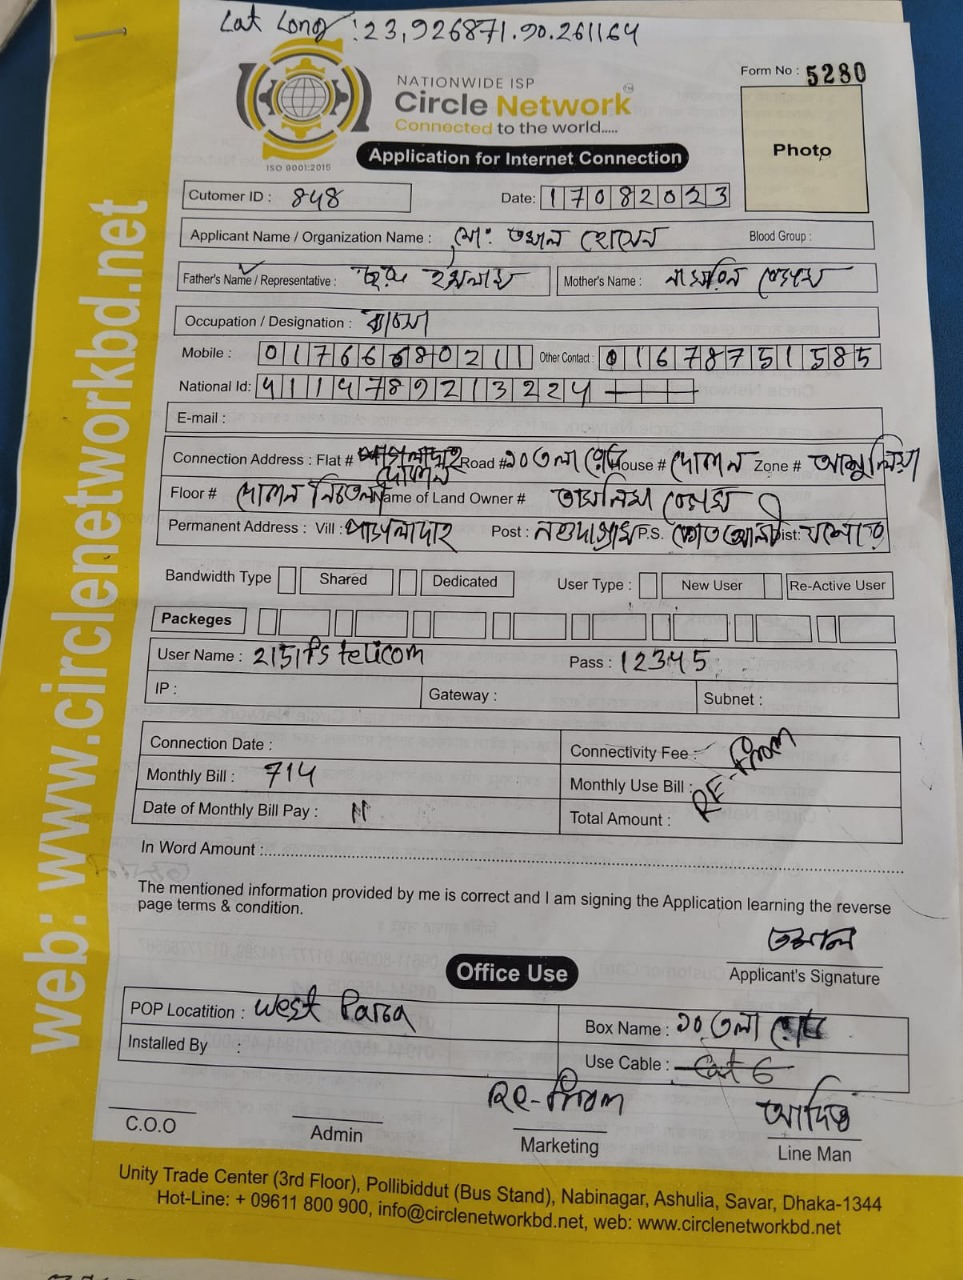 Lat Long : 23,926871.90.261164
NATIONWIDE ISP
Circle Network
Connected to the world.....
ISO 9001:2015
Form No : 5280
Photo
Application for Internet Connection
Cutomer ID : 848 Date: 17082023
Applicant Name / Organization Name : মো: তমাল হোসেন Blood Group :
Father's Name / Representative : ইসলাম Mother's Name : নাসরিন বেগম
Occupation / Designation :
Mobile : 01766680211 Other Contact : 01678751585
National Id: 41114789213224
E-mail :
Connection Address : Flat # Road # ১০ তলা House # দোলন Zone # আশুলিয়া
Floor # দোলন Name of Land Owner # তাসলিমা বেগম
Permanent Address : Vill : পাগলাদাহ Post : নওদাগ্রাম P.S. কোতোয়ালী Dist: যশোর
Bandwidth Type Shared Dedicated User Type : New User Re-Active User
Packeges
User Name : 2151Ps telicom Pass : 12345
IP : Gateway : Subnet :
Connection Date : Connectivity Fee :
Monthly Bill : 714 Monthly Use Bill : RE-From
Date of Monthly Bill Pay : 11 Total Amount :
In Word Amount :
The mentioned information provided by me is correct and I am signing the Application learning the reverse
page terms & condition.
তমাল
Applicant's Signature
Office Use
POP Locatition : West Parra Box Name : ১০ তলা
Installed By : Use Cable : Cat 6
Re-From
C.O.O Admin Marketing Line Man
Unity Trade Center (3rd Floor), Pollibiddut (Bus Stand), Nabinagar, Ashulia, Savar, Dhaka-1344
Hot-Line: + 09611 800 900, info@circlenetworkbd.net, web: www.circlenetworkbd.net
web: www.circlenetworkbd.net